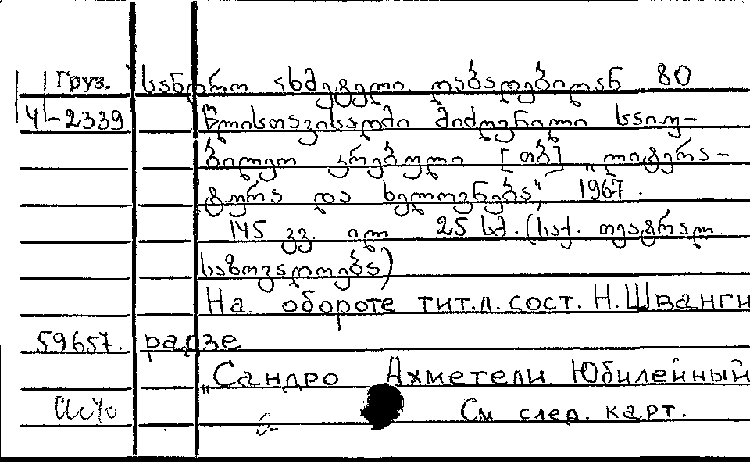 Груз. სანდრო ახმეტელი დაბადებიდან 80
Ч-2339 წლისთავისადმი მიძღვნილი საიუ-
ბილეო კრებული [თბ] „ლიტერა-
ტურა და ხელოვნება", 1967.
145 გვ. ილ 25 სმ. (საქ. თეატრალ
საზოგადოება)
На обороте тит.л. сост. Н.Шванги
59657. радзе
„Сандро Ахметели Юбилейный
См след. карт.